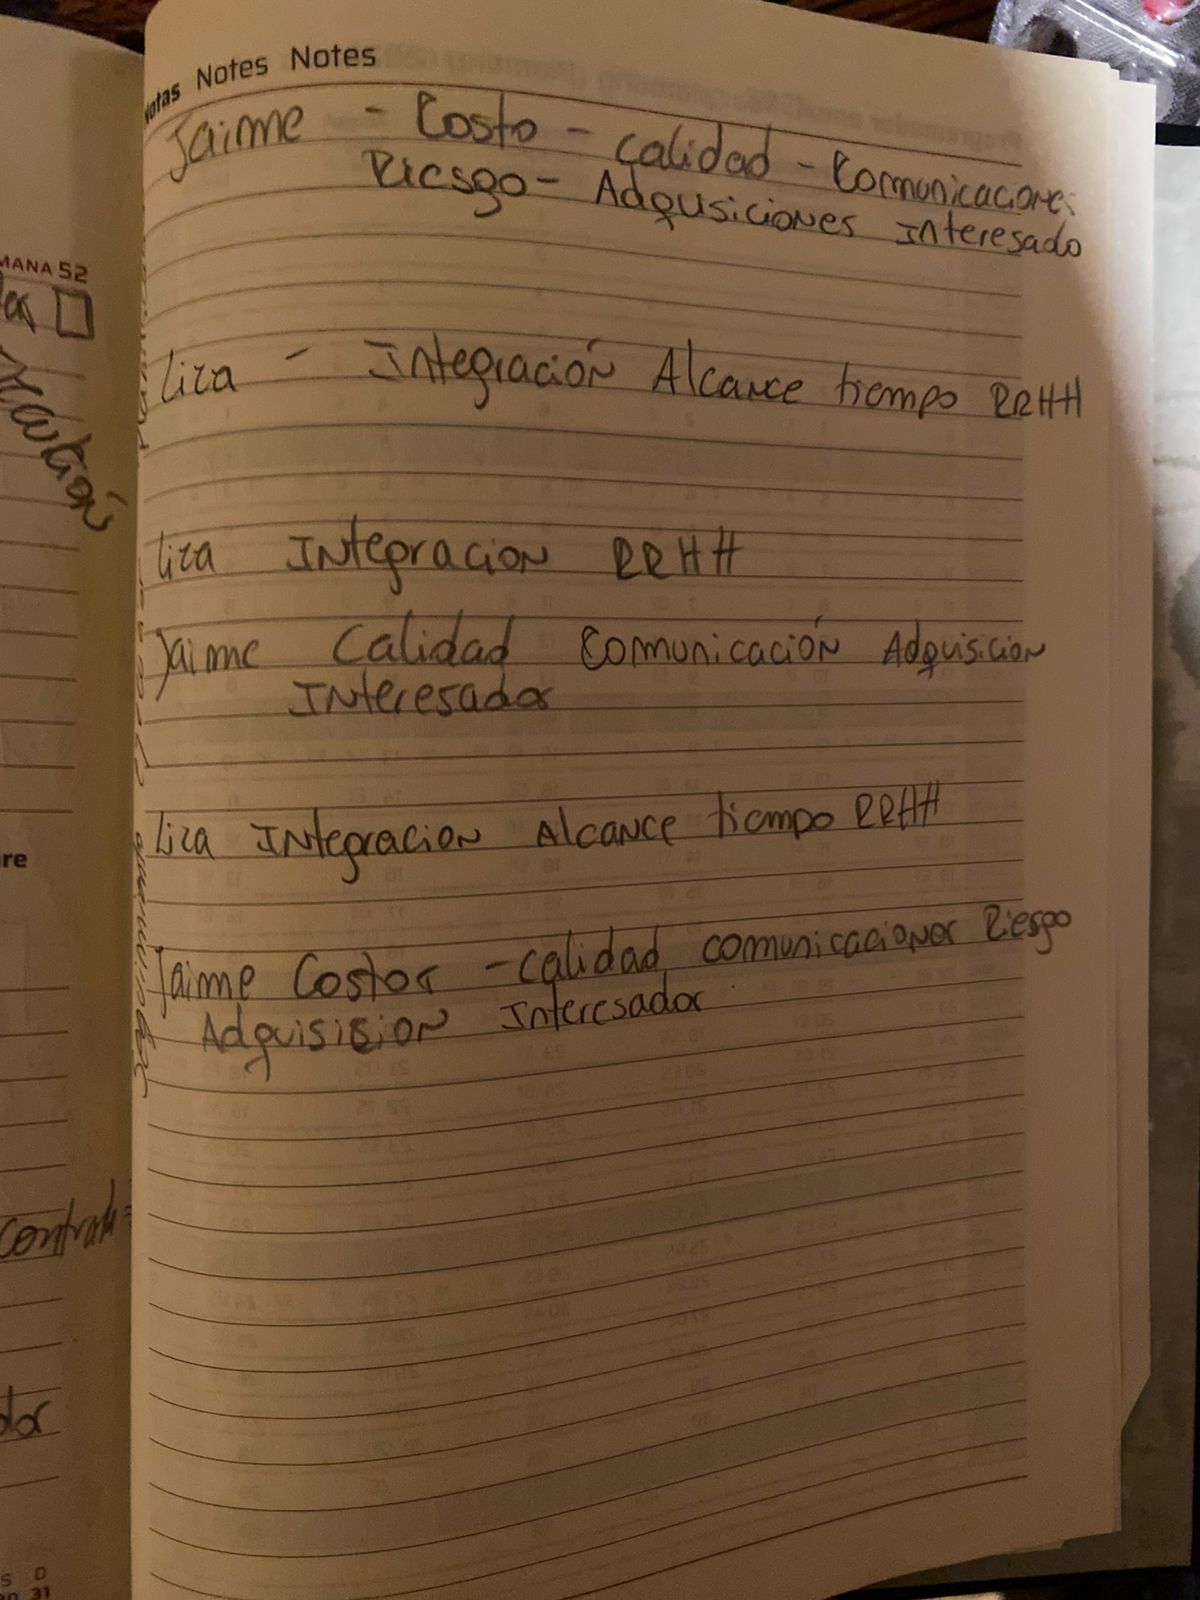 Notas Notes Notes
Jaime - Costo - calidad - Comunicaciones
Riesgo - Adqusiciones Interesado
liza - Integración Alcance tiempo RRHH
liza Integracion RRHH
Jaime Calidad Comunicación Adquisicion
Interesados
liza Integracion Alcance tiempo RRHH
Jaime Costos - calidad comunicaciones Riesgo
Adquisicion Interesados
MANA 52
re
S D
31